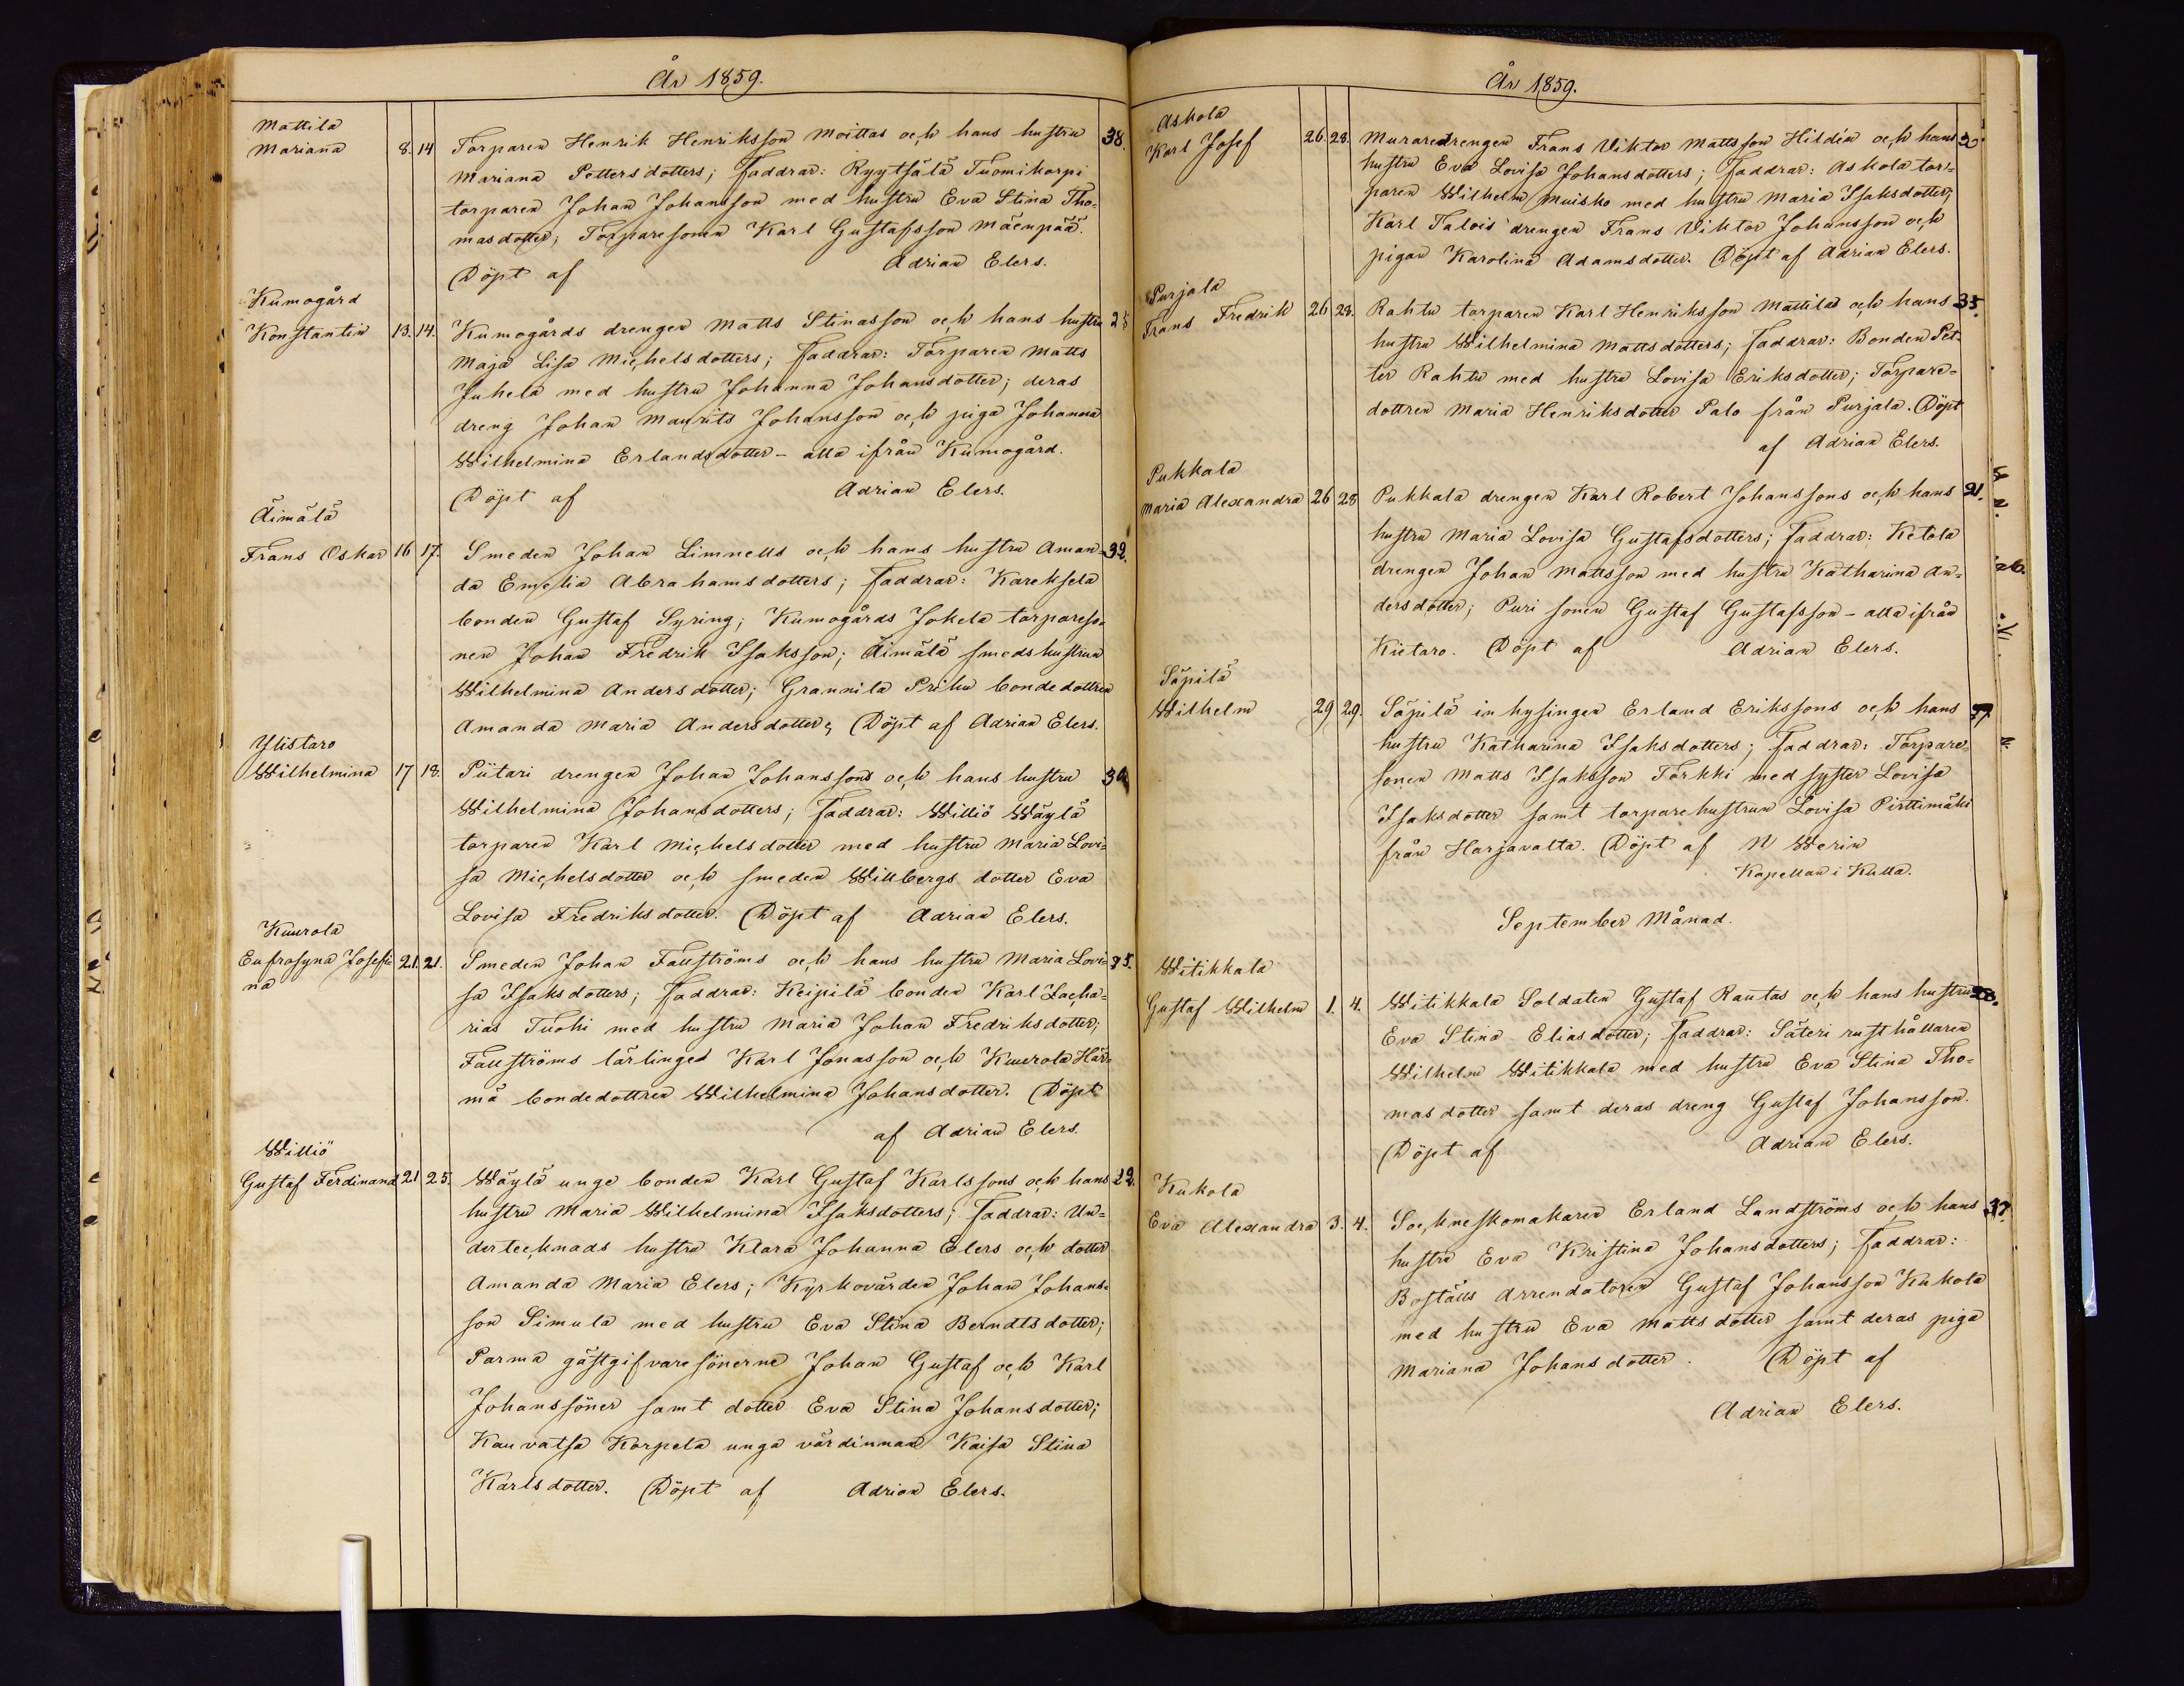 År 1859.
Mattila
Mariana 8. 14 Torparen Henrik Henriksson Moittas och hans hustru 38.
Mariana Pettersdotters; Faddrar: Ryytsälä Tuomikorpi
torparen Johan Johansson med hustru Eva Stina Tho-
masdotter; Torparesonen Karl Gustafsson Mäenpää.
Döpt af Adrian Elers.
Kumogård
Konstantin 13. 14. Kumogårds drengen Matts Stinasson och hans hustru 25
Maja Lisa Michelsdotters; Faddrar: Torparen Matts
Juhela med hustru Johanna Johansdotter; deras
dreng Johan Maurits Johansson och piga Johanna
Wilhelmina Erlandsdotter - alla ifrån Kumogård.
Döpt af Adrian Elers.
Äimälä
Frans Oskar 16 17. Smeden Johan Limnells och hans hustru Aman- 32.
da Emelia Abrahamsdotters; Faddrar: Karekselä
bonden Gustaf Syring; Kumogårds Jokela torpareso-
nen Johan Fredrik Isaksson; Äimälä smedshustrun
Wilhelmina Andersdotter; Grannila Prihu bondedottren
Amanda Maria Andersdotter; Döpt af Adrian Elers.
Ylistaro
Wilhelmina 17 18. Piitari drengen Johan Johanssons och hans hustru
Wilhelmina Johansdotters; Faddrar: Williö Wäylä
torparen Karl Michelsdotter med hustru Maria Lovi-
sa Michelsdotter och smeden Willbergs dotter Eva
Lovisa Fredriksdotter. Döpt af Adrian Elers.
Kuurola
Eufrosyna Josefi- 21. 21. Smeden Johan Fallströms och hans hustru Maria Lovi- 35.
na sa Isaksdotters; Faddrar: Keipilä bonden Karl Zacha-
rias Tuohi med hustru Maria Johan Fredriksdotter;
Fallströms lärlinged Karl Jonasson och Kuurola Här-
mä bondedottren Wilhelmina Johansdotter. Döpt
af Adrian Elers.
Williö
Gustaf Ferdinand 21 25. Wäylä unge bonden Karl Gustaf Karlssons och hans 22.
hustru Maria Wilhelmina Isaksdotters; Faddrar: Un-
dertecknads hustru Klara Johanna Elers och dotter
Amanda Maria Elers; Kyrkovärden Johan Johans-
son Simula med hustru Eva Stina Berndtsdotter;
Parma gästgifvaresönerne Johan Gustaf och Karl
Johanssöner samt dotter Eva Stina Johansdotter;
Kauvatsa Korpela unga värdinnan Kaisa Stina
Karlsdotter. Döpt af Adrian Elers.
År 1859.
Askola
Karl Josef 26. 28. Muraredrengen Frans Viktor Mattsson Hildén och hans
hustru Eva Lovisa Johansdotters; Faddrar: Askola tor-
paren Wilhelm Muisko med hustru Maria Isaksdotter;
Karl Talois' drengen Frans Viktor Johansson och
pigan Karolina Adamsdotter. Döpt af Adrian Elers.
Purjala
Frans Fredrik 26 28. Rahtu torparen Karl Henriksson Mattilas och hans 35.
hustru Wilhelmina Mattsdotters; Faddrar: Bonden Pet-
ter Rahtu med hustru Lovisa Eriksdotter; Torpare-
dottren Maria Henriksdotter Palo från Purjala. Döpt
af Adrian Elers.
Pukkala
Maria Alexandra 26 28 Pukkala drengen Karl Robert Johanssons och hans 21.
hustru Maria Lovisa Gustafsdotters; Faddrar: Ketola
drengen Johan Mattsson med hustru Katharina An-
dersdotter; Puri sonen Gustaf Gustafsson - alla ifrån
Kietaro. Döpt af Adrian Elers.
Säpilä
Wilhelm 29 29. Säpilä inhysingen Erland Erikssons och hans
hustru Katharina Isaksdotters; Faddrar: Torpare-
sonen Matts Isaksson Torkki med syster Lovisa
Isaksdotter samt torparehustrun Lovisa Pirttimäki
från Harjavalta. Döpt af N Werin
Kapellan i Kulla.
September Månad.
Witikkala
Gustaf Wilhelm 1. 4. Witikkala Soldaten Gustaf Rautas och hans hustru
Eva Stina Eliasdotter; Faddrar: Säteri rusthållaren
Wilhelm Witikkala med hustru Eva Stina Tho-
masdotter samt deras dreng Gustaf Johansson.
Döpt af Adrian Elers.
Kukola
Eva Alexandra 3. 4. Sockneskomakaren Erland Landströms och hans 37.
hustru Eva Kristina Johansdotters; Faddrar:
Boställs Arrendatoren Gustaf Johansson Kukola
med hustru Eva Mattsdotter samt deras piga
Mariana Johansdotter. Döpt af
Adrian Elers.